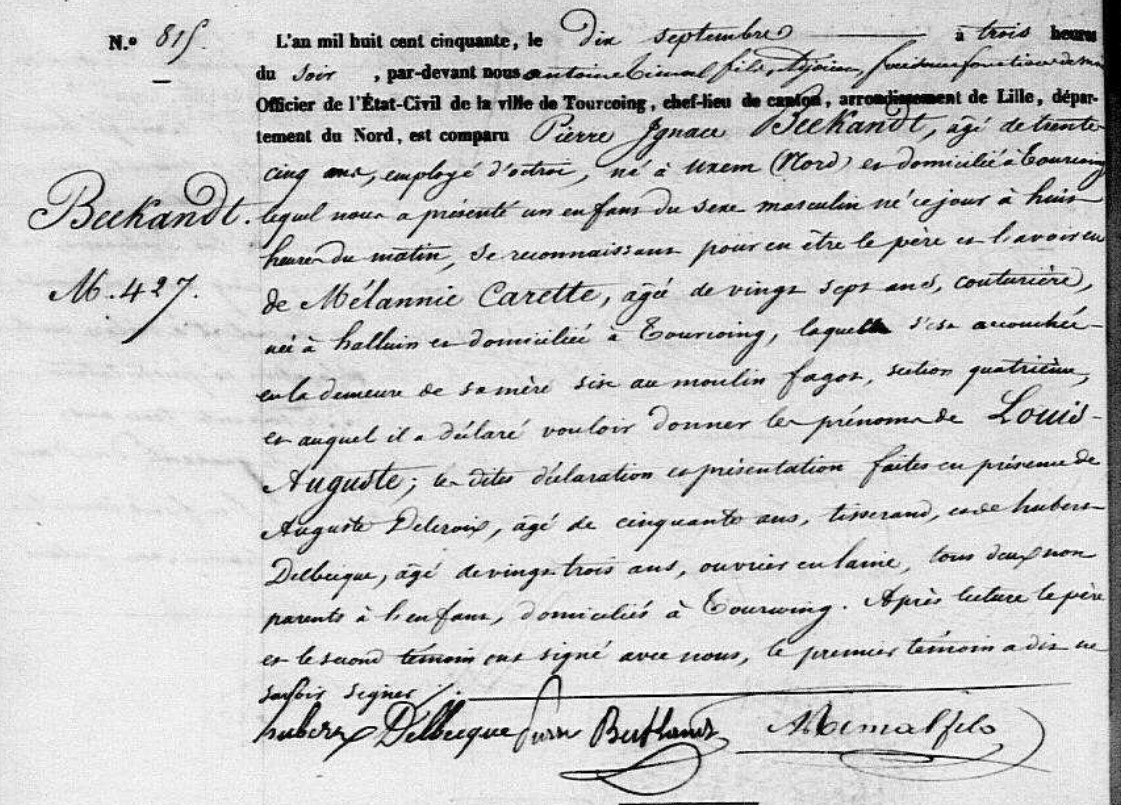 N.º 815.
L'an mil huit cent cinquante, le dix septembre à trois heures
du soir, par-devant nous antoine fils, adjoint, fonctions de
Officier de l'État-Civil de la ville de Tourcoing, chef-lieu de canton, arrondissement de Lille, dépar-
tement du Nord, est comparu Pierre Ignace Beekandt, âgé de trente-
cinq ans, employé d'octroi, né à uxem (Nord) et domicilié à Tourcoing
Beekandt. lequel nous a présenté un enfant du sexe masculin né ce jour à huit
heures du matin, se reconnaissant pour en être le père et l'avoir eu
M. 427. de Mélannie Carette, âgée de vingt sept ans, couturière,
née à halluin et domiciliée à Tourcoing, laquelle s'est accouchée
en la demeure de sa mère sise au moulin fagot, section quatrième,
et auquel il a déclaré vouloir donner les prénoms de Louis-
Auguste; les dites déclaration et présentation faites en présence de
Auguste Delcroix, âgé de cinquante ans, tisserand, et de hubert
Delbecque, âgé de vingt trois ans, ouvrier en laine, tous deux non
parents à l'enfant, domiciliés à Tourcoing. Après lecture le père
et le second témoin ont signé avec nous, le premier témoin a dit ne
savoir signer.
hubert Delbecque Pierre fils